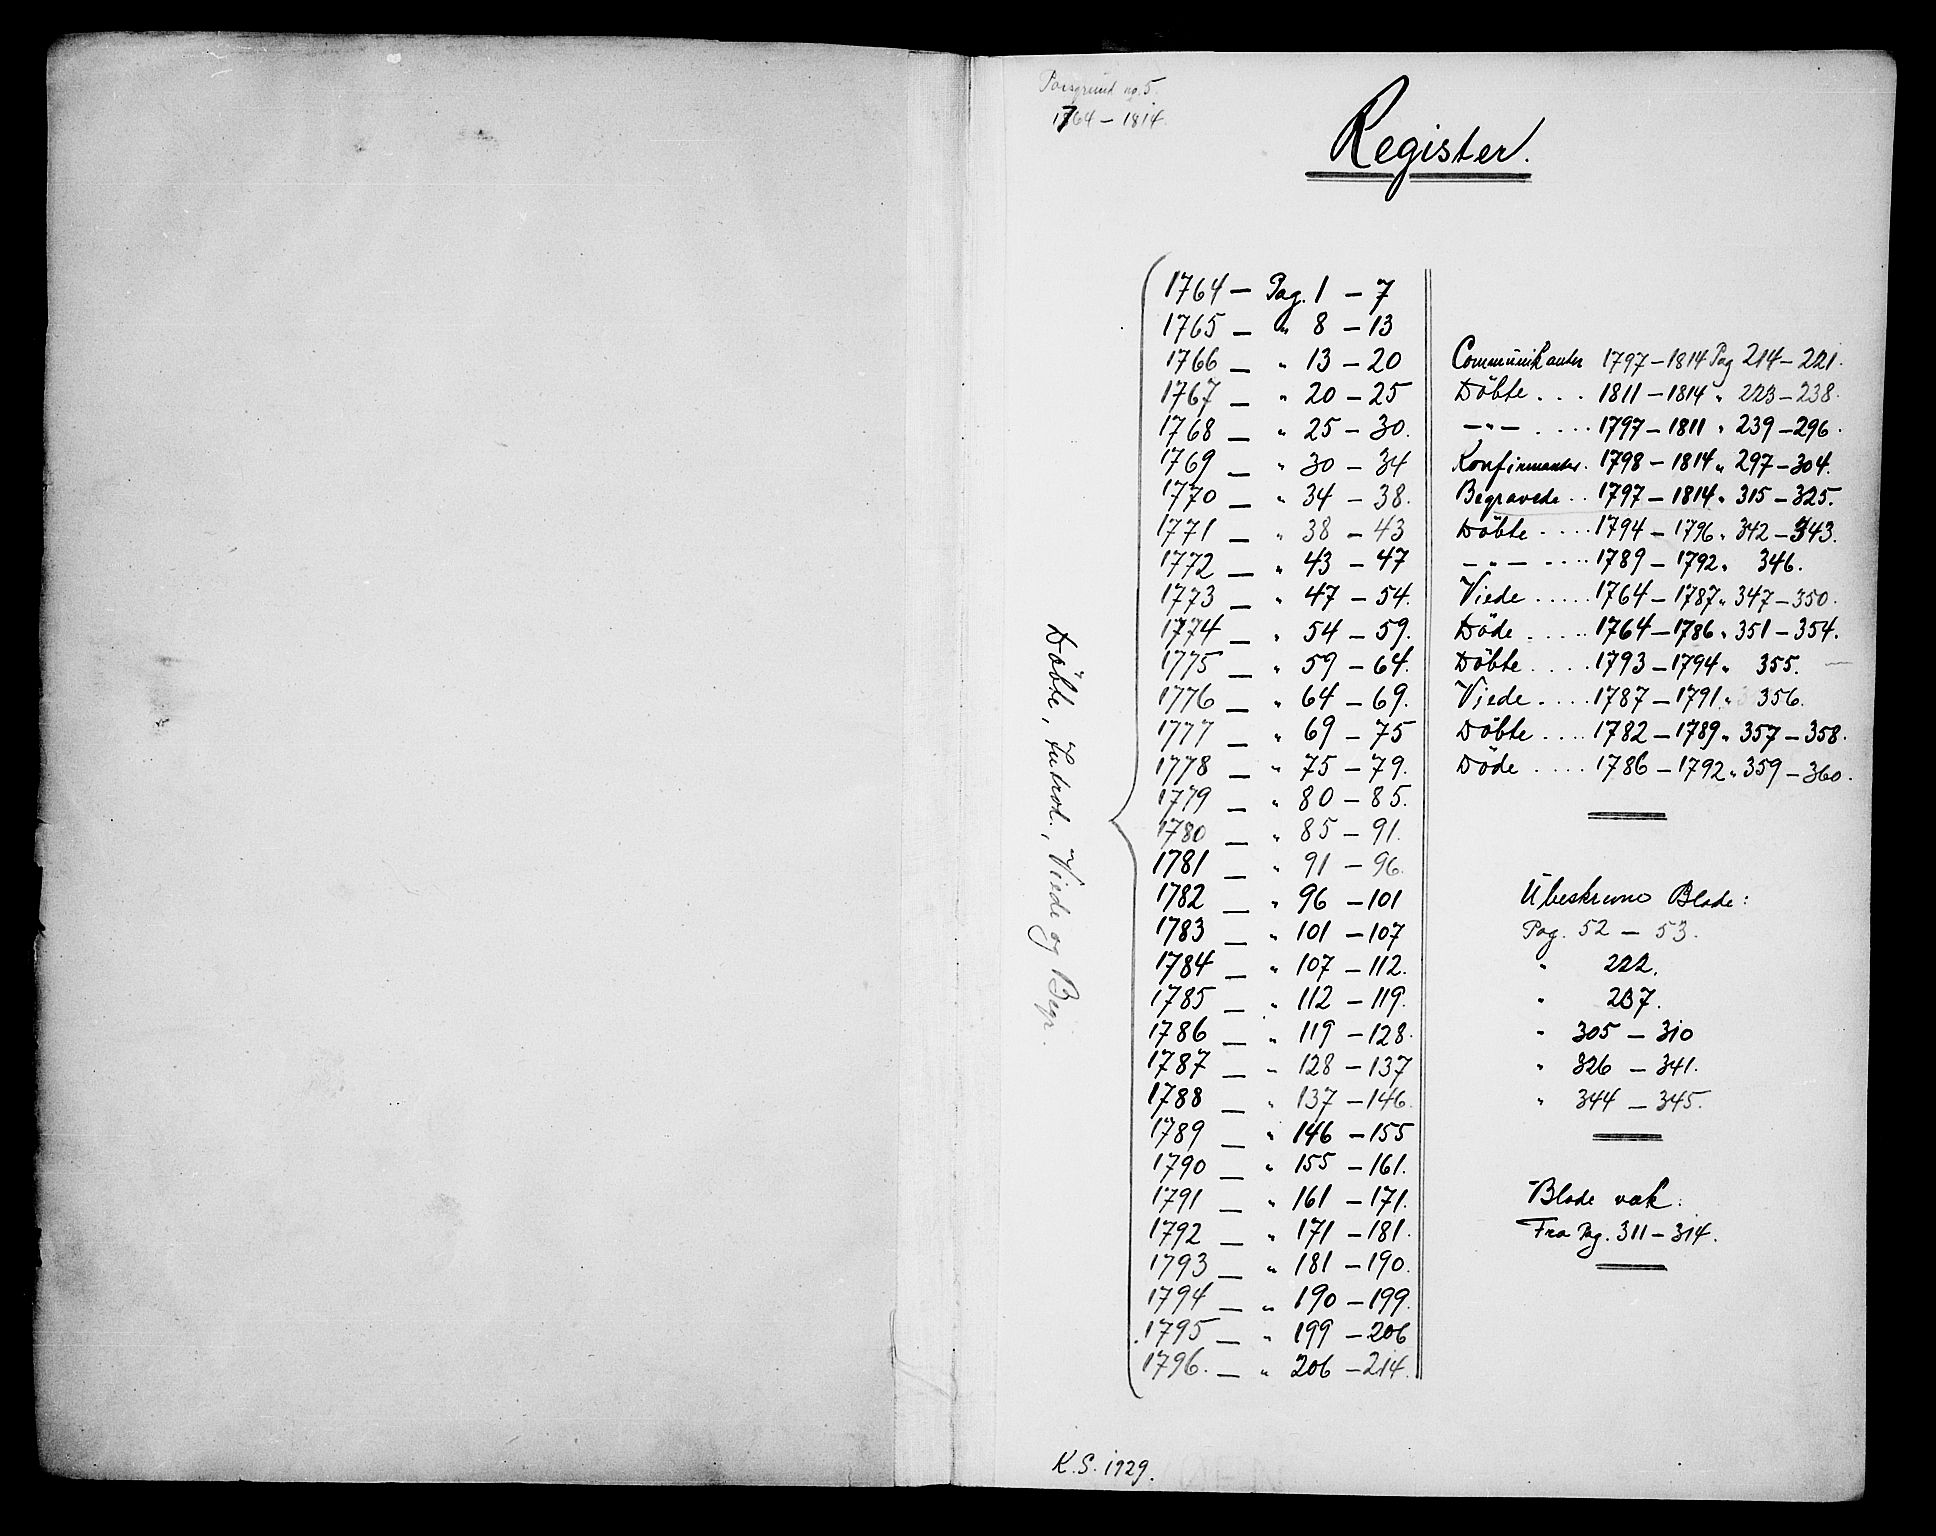 Porsgrund no. 5.
1764 – 1814.
Register.
Döbte, Introd., Viede og Begr.
1764 – Pag. 1 – 7
1765 – " 8 – 13
1766 – " 13 – 20
1767 – " 20 – 25
1768 – " 25 – 30.
1769 – " 30 – 34
1770 – " 34 – 38.
1771 – " 38 – 43
1772 – " 43 – 47
1773 – " 47 – 54.
1774 – " 54 – 59.
1775 – " 59 – 64.
1776 – " 64 – 69.
1777 – " 69 – 75
1778 – " 75 – 79.
1779 – " 80 – 85.
1780 – " 85 – 91.
1781 – " 91 – 96.
1782 – " 96 – 101
1783 – " 101 – 107
1784 – " 107 – 112.
1785 – " 112 – 119.
1786 – " 119 – 128.
1787 – " 128 – 137
1788 – " 137 – 146.
1789 – " 146 – 155
1790 – " 155 – 161.
1791 – " 161 – 171.
1792 – " 171 – 181.
1793 – " 181 – 190.
1794 – " 190 – 199.
1795 – " 199 – 206
1796. – " 206 – 214.
Communikanter 1797 – 1814 Pag 214 – 221.
Döbte . . . 1811 – 1814 " 223 – 238.
– " – . . . . 1797 – 1811 " 239 – 296.
Konfirmanter. 1798 – 1814 " 297 – 304.
Begravede . . 1797 – 1814 " 315 – 325.
Döbte . . . . 1794 – 1796 " 342 – 343.
– " – . . . . 1789 – 1792 " 346.
Viede . . . . . 1764 – 1787 " 347 – 350.
Döde . . . . . 1764 – 1786 " 351 – 354.
Döbte . . . . 1793 – 1794 " 355.
Viede . . . . 1787 – 1791 " 356.
Döbte . . . . 1782 – 1789 " 357 – 358.
Döde . . . . 1786 – 1792 " 359 – 360.
Ubeskrevne Blade:
Pag. 52 – 53.
" 222.
" 237.
" 305 – 310
" 326 – 341.
" 344 – 345.
Blade væk:
Fra Pag. 311 – 314.
K.S. 1929.